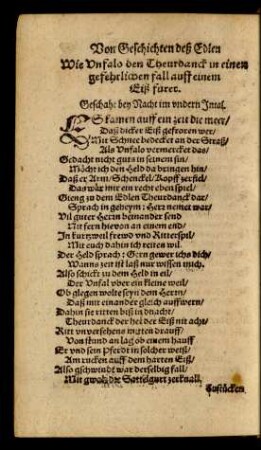 Von Geschichten deß Edlen
Wie Vnfalo den Theurdanck in einen
gefehrlichen fall auff einem
Eiß füret.
Geschah bey Nacht im vndern Intal.
ES kamen auff ein zeit die meer/
Daß dicker Eiß gefroren wer/
Mit Schnee bedecket an der Straß/
Als Vnfalo vermercket das/
Gedacht nicht guts in seinem sin/
Möcht ich den Held da bringen hin/
Daß er Arm/Schenckel/Kopff zerfiel/
Das wär mir ein recht eben spiel/
Gieng zu dem Edlen Theurdanck dar/
Sprach in geheym: Herr nemet war/
Vil guter Herrn beinander send
Nit fern hievon an einem end/
In kurtzweil frewd vnd Ritterspil/
Mit euch dahin ich reiten wil.
Der Held sprach: Gern gewer ichs dich/
Wanns zeit ist laß nur wissen mich.
Also schickt zu dem Held in eil/
Der Vnfal vber ein kleine weil/
Ob glegen wolte seyn dem Herrn/
Daß mit einander gleich auff wern/
Dahin sie ritten biß in d'nacht/
Theurdanck der het der Eiß nit acht/
Ritt vnversehens mitten drauff/
Von stund an lag ob einem hauff
Er vnd sein Pferdt in solcher weiß/
Am rucken auff dem harten Eiß/
Also gschwindt war derselbig fall/
Mit gwalt die Sattelgurt zerknall.
Zustücken